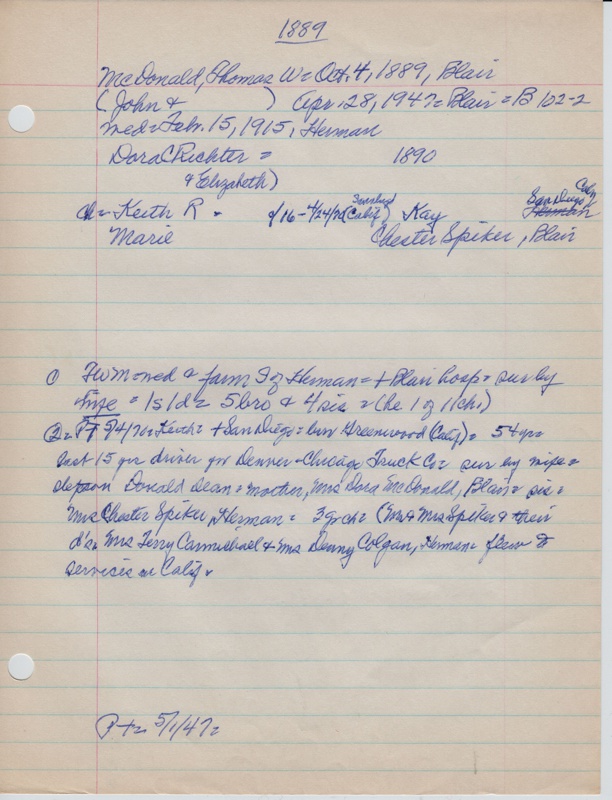 1889
McDonald, Thomas W= Oct. 4, 1889, Blair
( John & ) Apr. 28, 1947= Blair = B 102-2
med= Feb. 15, 1915, Herman
Dora C Richter = 1890
& Elizabeth)
ch= Keith R - d/16-4/24/70 (Calif) Kay San Diego Herman
Marie Chester Spiker, Blair
① Twm=med & farm of Herman= + Blair hosp= sur by
wife = 1s 1d= 5 bro & 4 sis = (he 1 of 11 ch.)
②= PT 5/4/70= Keith= + San Diego= bur Greenwood (Calif)= 54 yrs
last 15 yrs driver for Denver-Chicago Truck Co= sur by wife=
stepson Donald Dean= mother, Mrs Dora McDonald, Blair= sis=
Mrs Chester Spiker, Herman= 3 grch= (Mr & Mrs Spiker & their
d's, Mrs Terry Carmichael & Mrs Denny Colgan, Herman= flew to
services in Calif.
PT= 5/1/47=